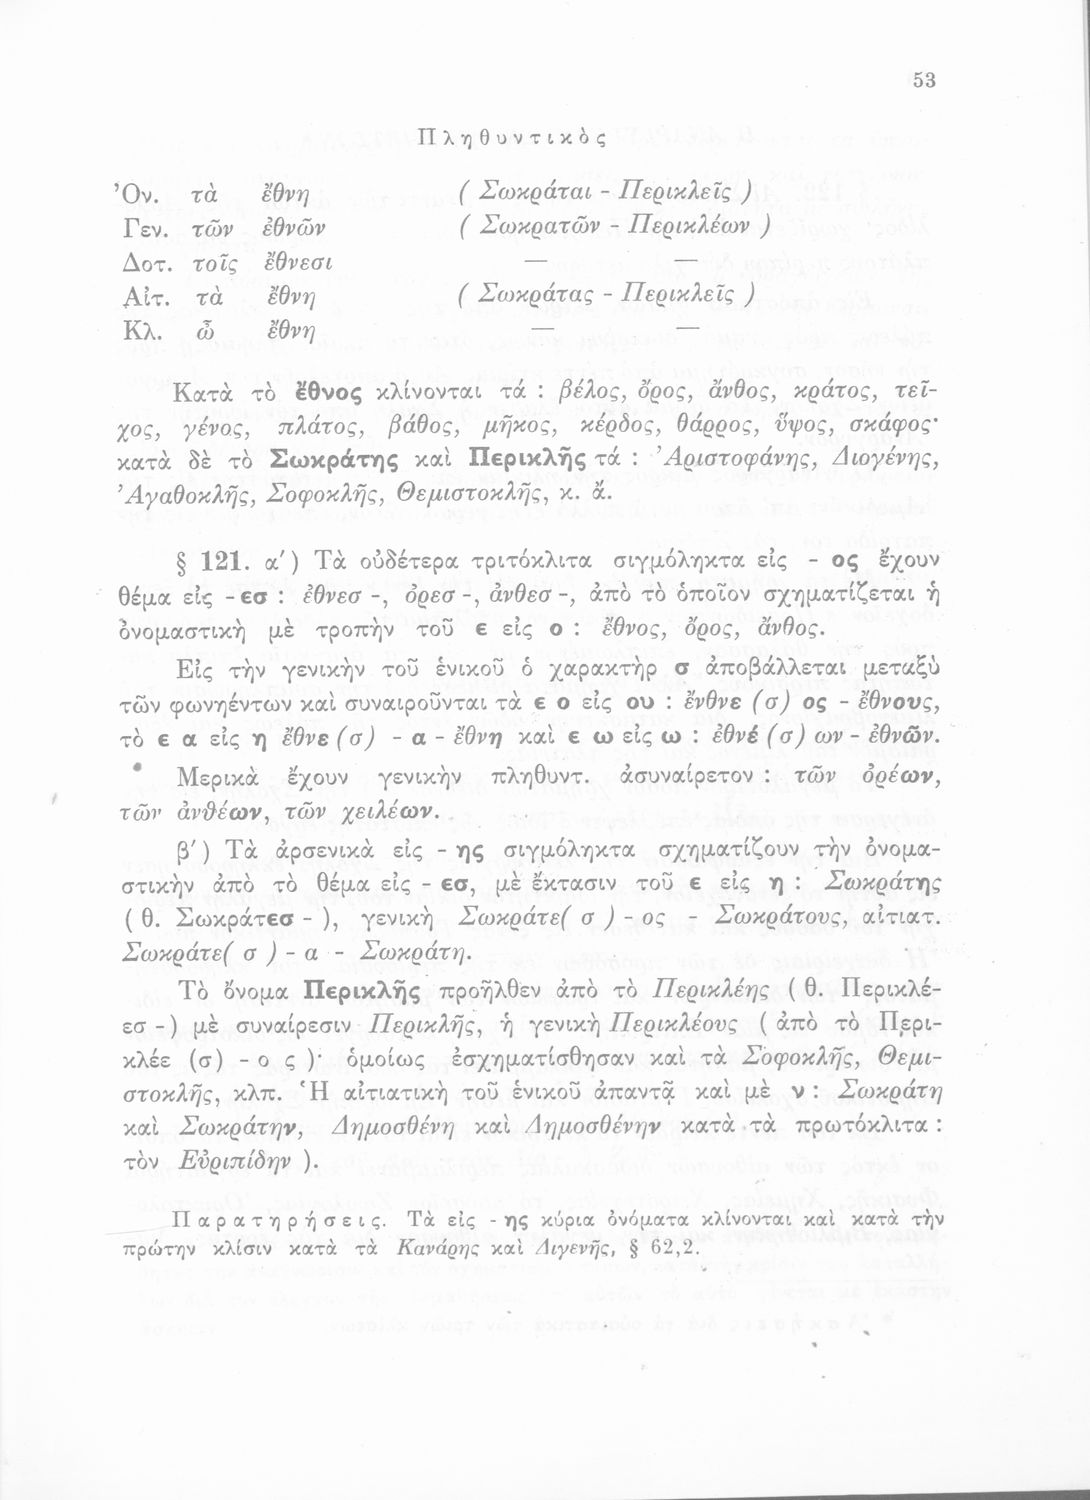 53
Πληθυντικὸς
Ὀν. τὰ ἔθνη ( Σωκράται - Περικλεῖς )
Γεν. τῶν ἐθνῶν ( Σωκρατῶν - Περικλέων )
Δοτ. τοῖς ἔθνεσι — —
Αἰτ. τὰ ἔθνη ( Σωκράτας - Περικλεῖς )
Κλ. ὦ ἔθνη — —
Κατὰ τὸ ἔθνος κλίνονται τά : βέλος, ὄρος, ἄνθος, κράτος, τεῖ-
χος, γένος, πλάτος, βάθος, μῆκος, κέρδος, θάρρος, ὕψος, σκάφος·
κατὰ δὲ τὸ Σωκράτης καὶ Περικλῆς τά : Ἀριστοφάνης, Διογένης,
Ἀγαθοκλῆς, Σοφοκλῆς, Θεμιστοκλῆς, κ. ἄ.
§ 121. α′) Τὰ οὐδέτερα τριτόκλιτα σιγμόληκτα εἰς - ος ἔχουν
θέμα εἰς - εσ : ἐθνεσ -, ὀρεσ -, ἀνθεσ -, ἀπὸ τὸ ὁποῖον σχηματίζεται ἡ
ὀνομαστικὴ μὲ τροπὴν τοῦ ε εἰς ο : ἔθνος, ὄρος, ἄνθος.
Εἰς τὴν γενικὴν τοῦ ἑνικοῦ ὁ χαρακτὴρ σ ἀποβάλλεται μεταξὺ
τῶν φωνηέντων καὶ συναιροῦνται τὰ ε ο εἰς ου : ἔνθνε (σ) ος - ἔθνους,
τὸ ε α εἰς η ἔθνε (σ) - α - ἔθνη καὶ ε ω εἰς ω : ἐθνέ (σ) ων - ἐθνῶν.
Μερικὰ ἔχουν γενικὴν πληθυντ. ἀσυναίρετον : τῶν ὀρέων,
τῶν ἀνθέων, τῶν χειλέων.
β′) Τὰ ἀρσενικὰ εἰς - ης σιγμόληκτα σχηματίζουν τὴν ὀνομα-
στικὴν ἀπὸ τὸ θέμα εἰς - εσ, μὲ ἔκτασιν τοῦ ε εἰς η : Σωκράτης
( θ. Σωκράτεσ - ), γενικὴ Σωκράτε( σ ) - ος - Σωκράτους, αἰτιατ.
Σωκράτε( σ ) - α - Σωκράτη.
Τὸ ὄνομα Περικλῆς προῆλθεν ἀπὸ τὸ Περικλέης ( θ. Περικλέ-
εσ -) μὲ συναίρεσιν Περικλῆς, ἡ γενικὴ Περικλέους ( ἀπὸ τὸ Περι-
κλέε (σ) - ο ς )· ὁμοίως ἐσχηματίσθησαν καὶ τὰ Σοφοκλῆς, Θεμι-
στοκλῆς, κλπ. Ἡ αἰτιατικὴ τοῦ ἑνικοῦ ἀπαντᾷ καὶ μὲ ν : Σωκράτη
καὶ Σωκράτην, Δημοσθένη καὶ Δημοσθένην κατὰ τὰ πρωτόκλιτα :
τὸν Εὐριπίδην ).
Παρατηρήσεις. Τὰ εἰς - ης κύρια ὀνόματα κλίνονται καὶ κατὰ τὴν
πρώτην κλίσιν κατὰ τὰ Κανάρης καὶ Διγενῆς, § 62,2.